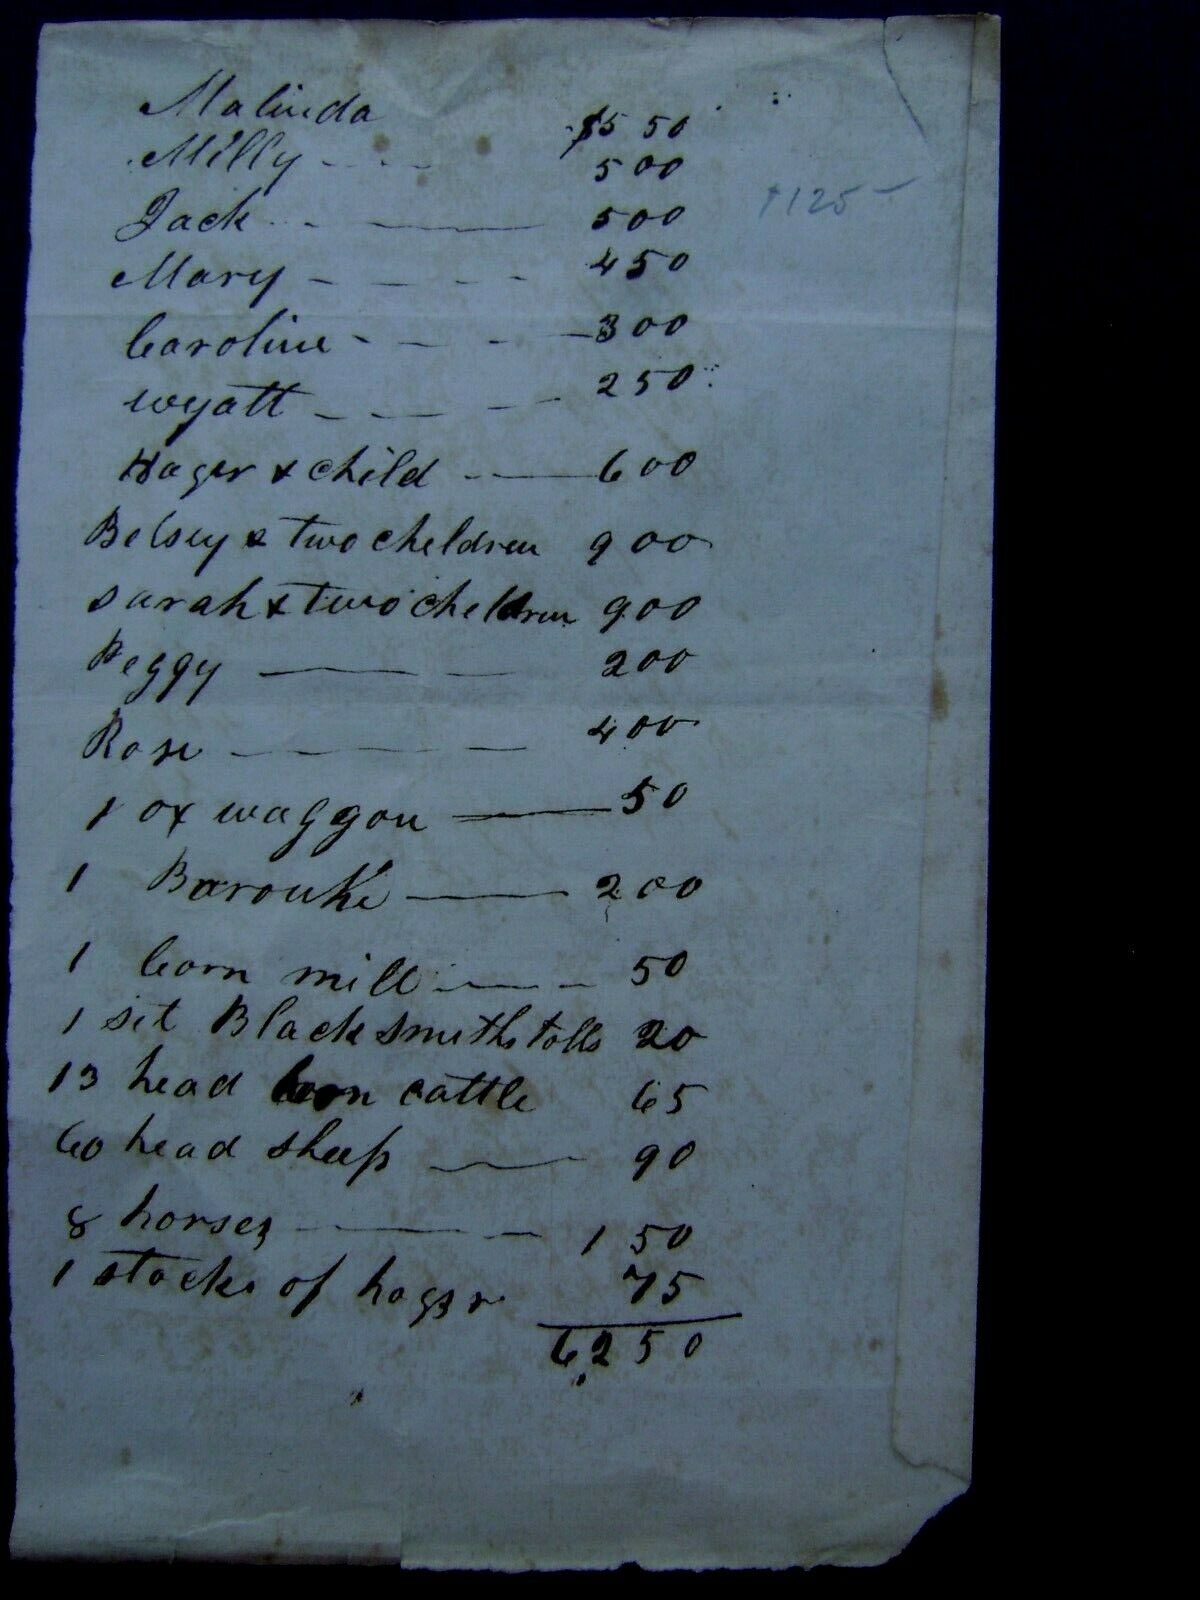 Malinda $550
Milly 500
Jack 500
Mary 450
Caroline 300
wyatt 250
Hager & child 600
Betsey & two cheldren 900
Sarah & two cheldren 900
Peggy 200
Rose 400
1 ox waggon 50
1 Barouke 200
1 Corn mill 50
1 set Black smiths tolls 20
13 head cattle 65
60 head sheep 90
8 horses 150
1 stocks of 75
6250
$125